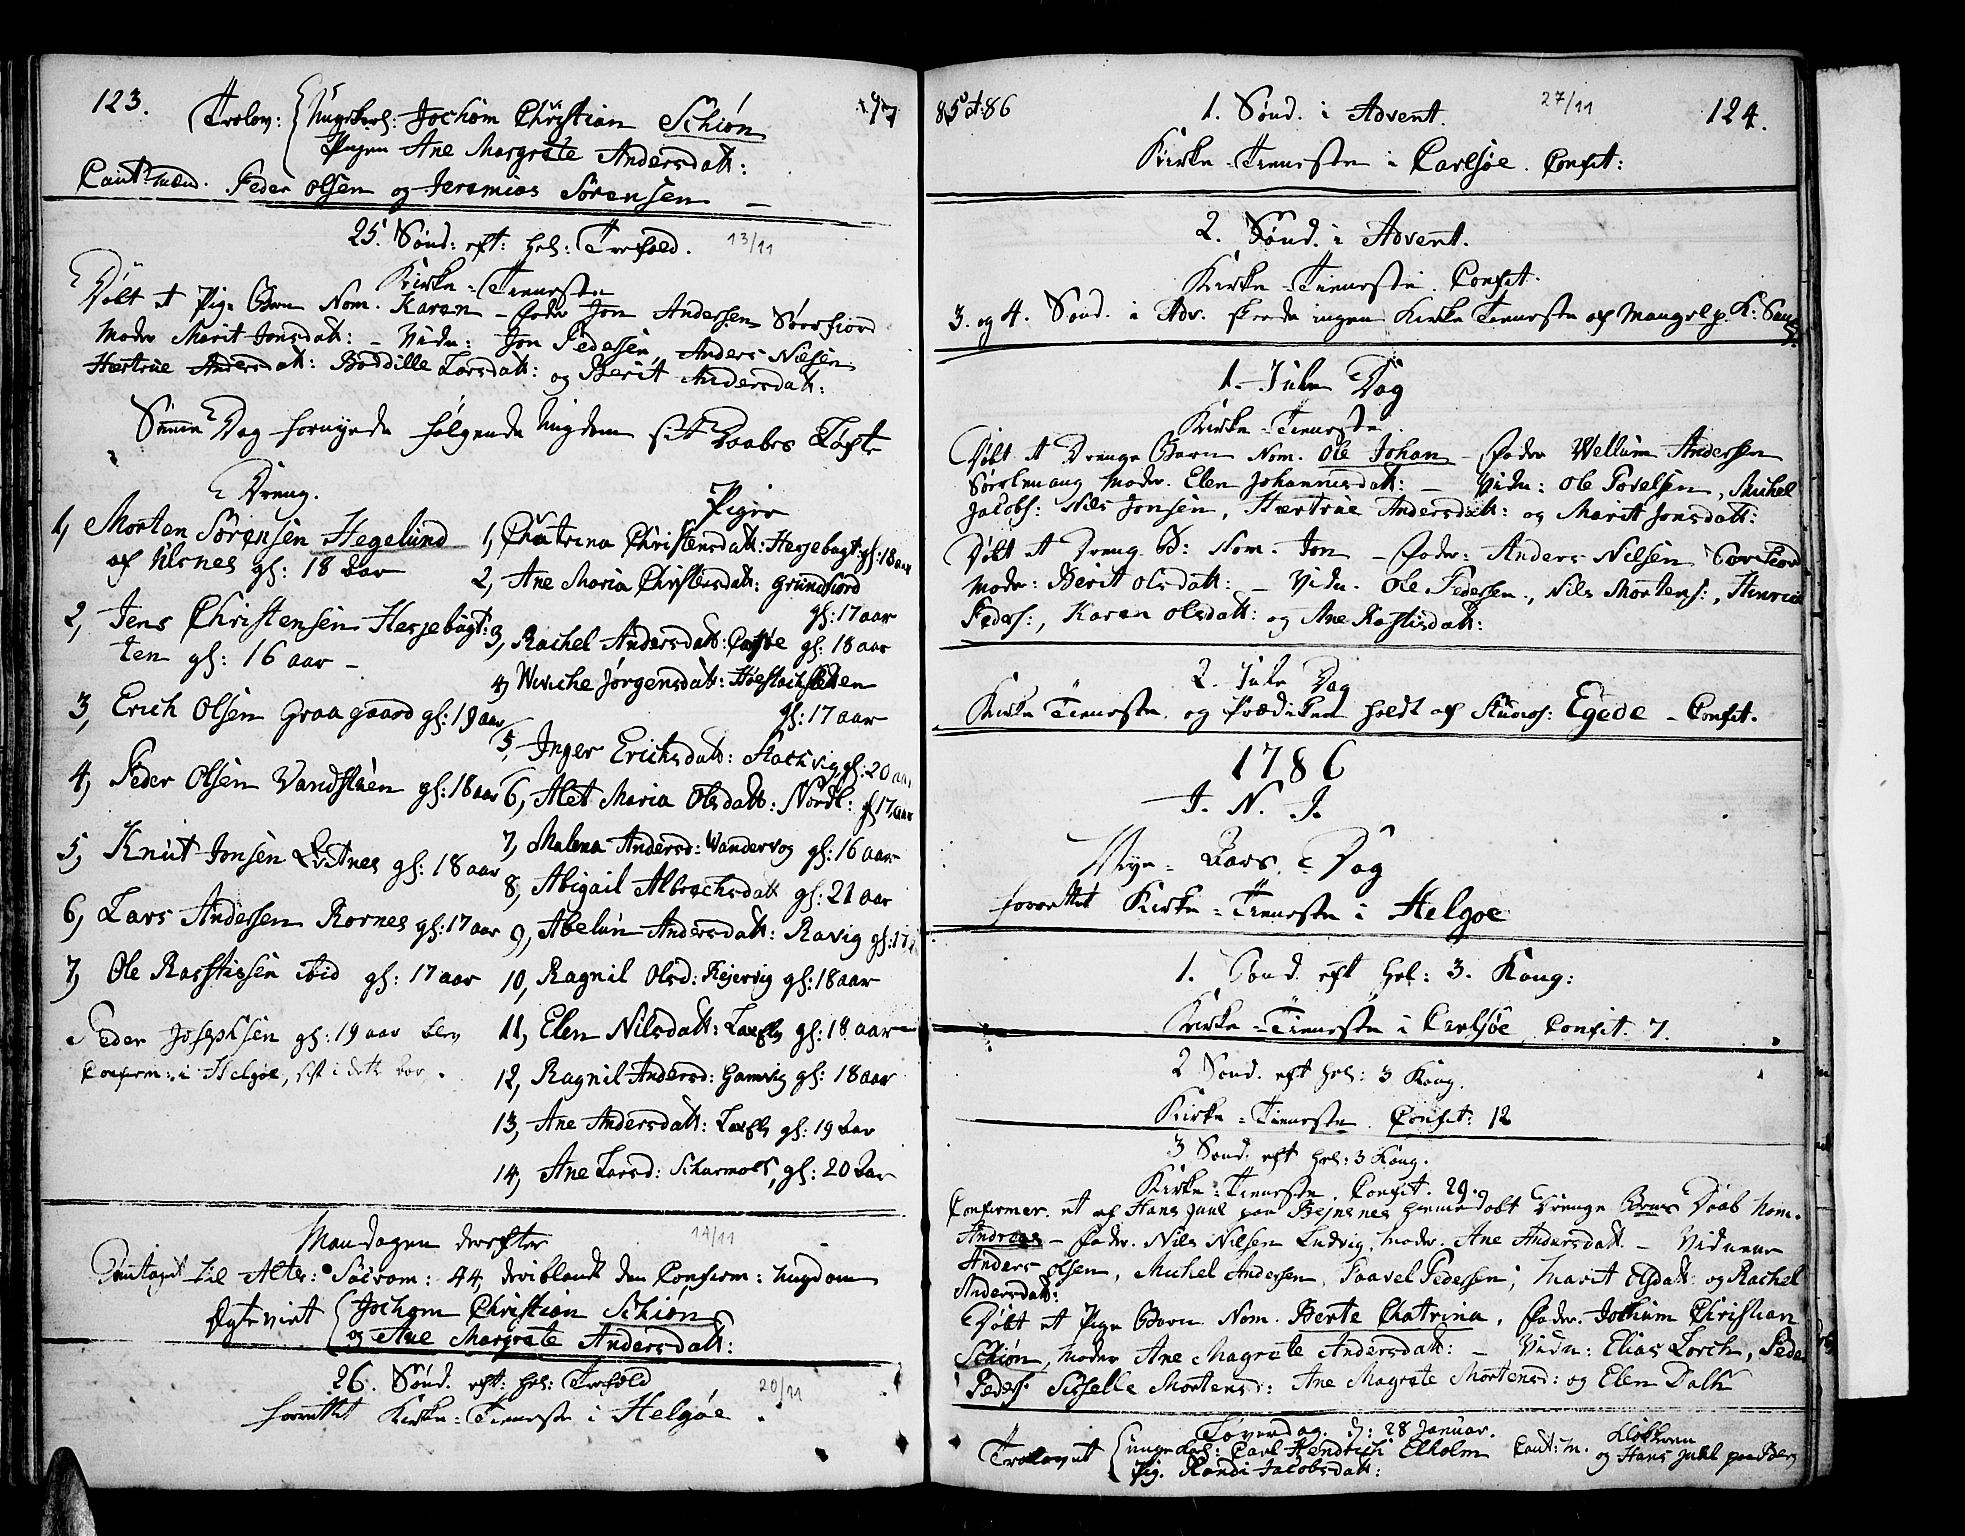 123.
Trolov: Ungekarl: Jochom Christian Schiøn
Pigen Ane Margrete Andersdatt:
Caut: Mænd. Peder Olsen og Jeremias Sørensen
25. Sønd: eft: hel: Trefold. 13/11
Kirke-Tieneste
Døbt et Pige Barn Nom. Karen - Fader Jon Andersen Sørfiord
Moder Marit Jonsdatt: - Vidn: Jon Pedersen, Anders Nilsen
Hertrüe Andersdatt: Boddille Larsdatt: og Berit Andersdatt:
Samme Dag fornyede følgende Ungdom sit Daabes Løfte
Dreng.
1, Morten Sørensen Hegelund
af Ulsnes gl: 18 Aar
2, Jens Christensen Hessebagt:
ten gl: 16 aar -
3, Erich Olsen Graagaard gl: 19 aar
4, Peder Olsen Vandstüen gl: 18 aar
5, Knut Jonsen Qvitnes gl: 18 aar
6, Lars Andersen Rornes gl: 17 aar
7, Ole Rastissen ibid gl: 17 aar
Peder Josephsen gl: 19 aar blev
Confirm: i Helgøe, sist i dette Aar.
Piger
1, Chatrina Christensdatt: Hessebagt: gl: 18 aar
2, Ane Maria Christensdatt: Grundfiord
gl: 17 aar
3, Rachel Andersdatt: Carlsøe gl: 18 aar
4, Wiviche Jørgensdatt:
gl: 17 aar
5, Inger Erichsdatt: Stachvig gl: 20 aar
6, Alet Maria Olsdatt: Nordl: gl 17 aar
7, Malena Andersd: Wandervog gl: 16 aar
8, Abigail Albrechtsdatt gl: 21 aar
9, Abelun Andersdatt: Ravig gl: 17
10, Ragnil Olsd: Kejervig gl: 18 aar
11, Elen Nilsdatt: gl: 18 aar
12, Ragnil Andersd: Hamvig gl: 18 aar
13, Ane Andersdatt: gl: 19 Aar
14, Ane Larsd: Scharmoes, gl: 20 Aar
Mandagen derefter 14/11
Anntaget til Alter: Sacram: 44, deriblandt den Confirm: Ungdom
Egteviet Jochom Christian Schiøn
og Ane Margrete Andersdatt:
26. Sønd. eft: hel: Trefold 20/11
forrettet Kirke-Tieneste i Helgøe.
85 et 86
1. Sønd. i Advent. 27/11
124.
Kirke-Tieneste i Carlsøe. Confit:
2. Sønd. i Advent.
Kirke-Tieneste. Confit.
3. og 4. Sønd. i Adv. skeede ingen Kirke Tieneste af Mangel p. K: Sang
1. Jule Dag
Kirke-Tieneste.
Døbt et Drenge Barn Nom. Ole Johan - Fader Wellum Andersen
Sørlenang Moder. Elen Johannesdatt: - Vidn: Ole Povelsen, Michel
Jacobs: Nils Jonsen, Hertrüe Andersdatt: og Marit Jonsdatt:
Døbt et Dreng. B: Nom. Jon - Fader: Anders Nilsen Sørfiord
Moder: Berit Olsdatt: - Vidn. Ole Pedersen, Nils Mortens:, Hinrich
Peders:, Karen Olsdatt: og Ane Rastisdatt:
2. Jule Dag
Kirke Tieneste og Prædiken holdt af Studios: Egede - Confit.
1786
I. N. J.
Nye-Aars-Dag
forrettet Kirke-Tieneste i Helgøe
1. Sønd. eft hel: 3. Kong:
Kirke-Tieneste i Carlsøe Confit. 7.
2 Sønd. eft hel: 3 Kong.
Kirke-Tieneste. Confit: 12
3 Sønd. eft hel: 3 Kong.
Kirke-Tieneste. Confit. 29.
Confirmer. et af Hans Juul paa Bejnsnes hjemmedøbt Drenge Barns Daab Nom.
Andreas - Fader. Nils Nilsen Ludvig. Moder. Ane Andersdatt - Vidnerne
Anders Olsen, Michel Andersen, Paavel Pedersen, Marit Elsdatt: og Rachel
Andersdatt:
Døbt et Pige Barn Nom. Berte Chatrina, Fader. Jochum Christian
Schiøn, Moder Ane Magrete Andersdatt: - Vidn: Elias Lorch, Peder
Peders. Sisselle Mortensd: Ane Magrete Mortensd: og Elen Dalk
Løverdag. d: 28 Januar.
Trolovet unge Karl: Carl Hendrich Elholm Caut: M. Klokkeren
Pig. Randi Jacobsdatt: og Hans Juhl paa